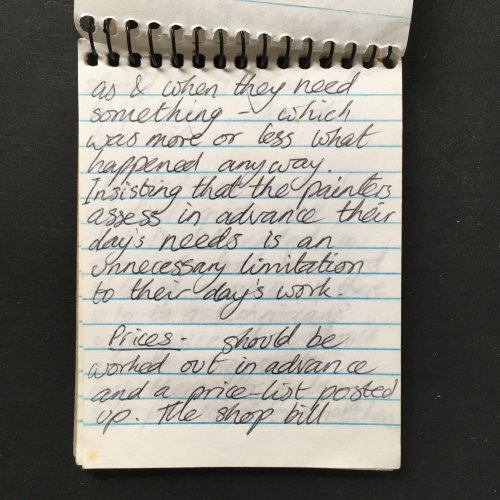 as & when they need
something - which
was more or less what
happened anyway.
Insisting that the painters
assess in advance their
day's needs is an
unnecessary limitation
to their day's work.
Prices - should be
worked out in advance
and a price-list posted
up. The shop bill